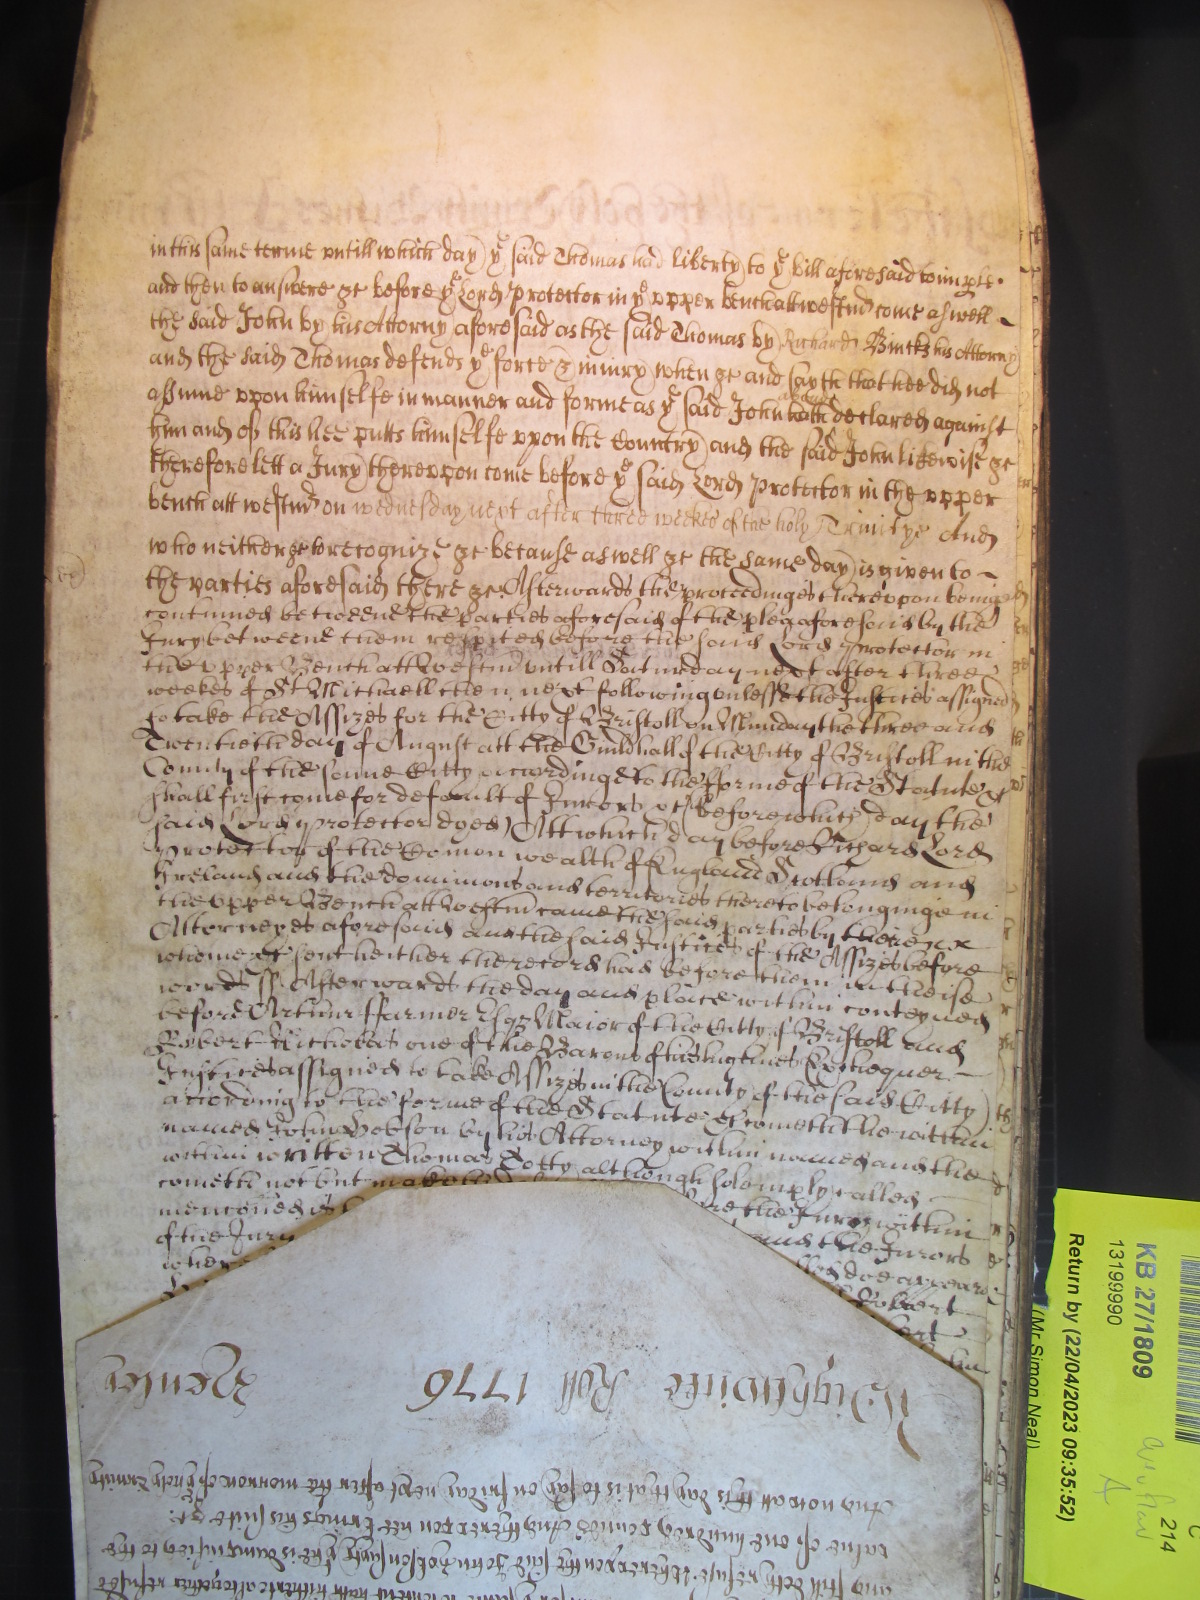 in this same terme untill which day yͤ said Thomas had liberty to yͤ bill aforesaid to imple
and then to answere &c before yͤ Lord Protector in yͤ upper bench att westmʳ come aswell
the said John by his Attorny aforesaid as the said Thomas by Richard Binckes his Attorny
and the said Thomas defends yͤ force & iniury when &c and sayth that hee did not
assume upon himselfe in manner and forme as yͤ said John above hath declared against
him and of this hee putts himselfe upon the Country and the said John likewise &c
therefore lett a Jury thereupon come before yͤ said Lord Protector in the upper
bench att westmʳ on wednesday next after three weekes of the holy Trinitye And
who neither &c to recognize &c because aswell &c the same day is given to
the parties aforesaid there &c Afterwards the proceedinges thereupon being
continued betweene the parties aforesaid of the plea aforesaid by the
Jury betweene them respited before the said Lord Protector in
the upper Bench att Westmʳ untill Saturday next after three
weekes of St Michaell then next following unlesse the Justices assigned
to take the Assizes for the Citty of Bristoll on Munday the three and
Twentieth day of August att the Guildhall of the Citty of Bristoll in the
County of the same Citty accordinge to the forme of the Statute &c
shall first come for default of Jurors &c (before which day the
said Lord Protector dyed) Att which day before Richard Lord
Protector of the Comon wealth of England Scotland and
Ireland and the dominions and territories thereto belonginge in
the upper Bench att Westmʳ came the said parties by their
Attorneyes aforesaid and the said Justices of the Assizes before
whome &c sent hether the record had before them in theise
words ss Afterwards the day and place within conteyned
before Arthur Farmer Esqʳ Maior of the Citty of Bristoll and
Robert Nicholas one of the Barons of his highnes Exchequer
Justices assigned to take Assizes in the County of the said Citty
according to the forme of the Statute &c cometh the within
named John Hobson by his Attorney within named and the
within written Thomas Totty although solemply called
cometh not but make
menconed is the Jury within
of the Jury and the Jurors
doe appeare
Robert
Wightwicke Roll 1776 Henley
And now att this day that is to say on friday next after the morrow of the holy Trinity
value of one hundred pounds And thereupon hee brings his suite &c
and still doth refuse whereupon the said John Hobson saith that he is damnified to the
KB 27/1809
13199990
Return by (22/04/2023 09:35:52)
(Mr Simon Neal)
214
C
A